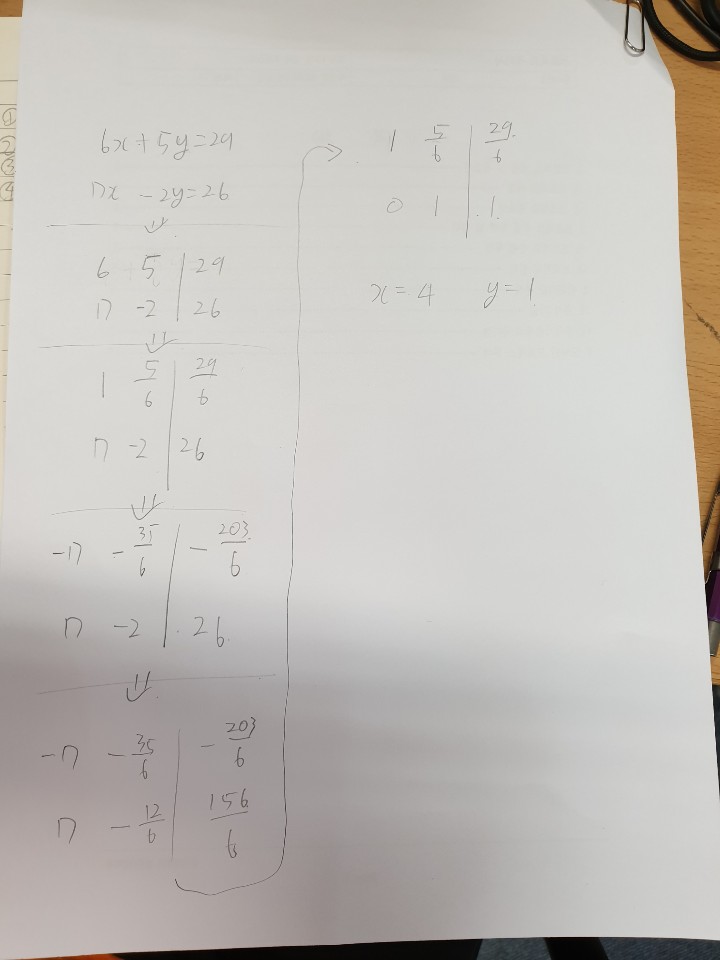 ①
②
③
④
6x+5y=29
7x-2y=26
⇓
6 5 | 29
7 -2 | 26
⇓
1 5/6 | 29/6
7 -2 | 26
⇓
-7 -35/6 | -203/6
7 -2 | 26
⇓
-7 -35/6 | -203/6
7 -12/6 | 156/6
→ 1 5/6 | 29/6
0 1 | 1
x=4 y=1